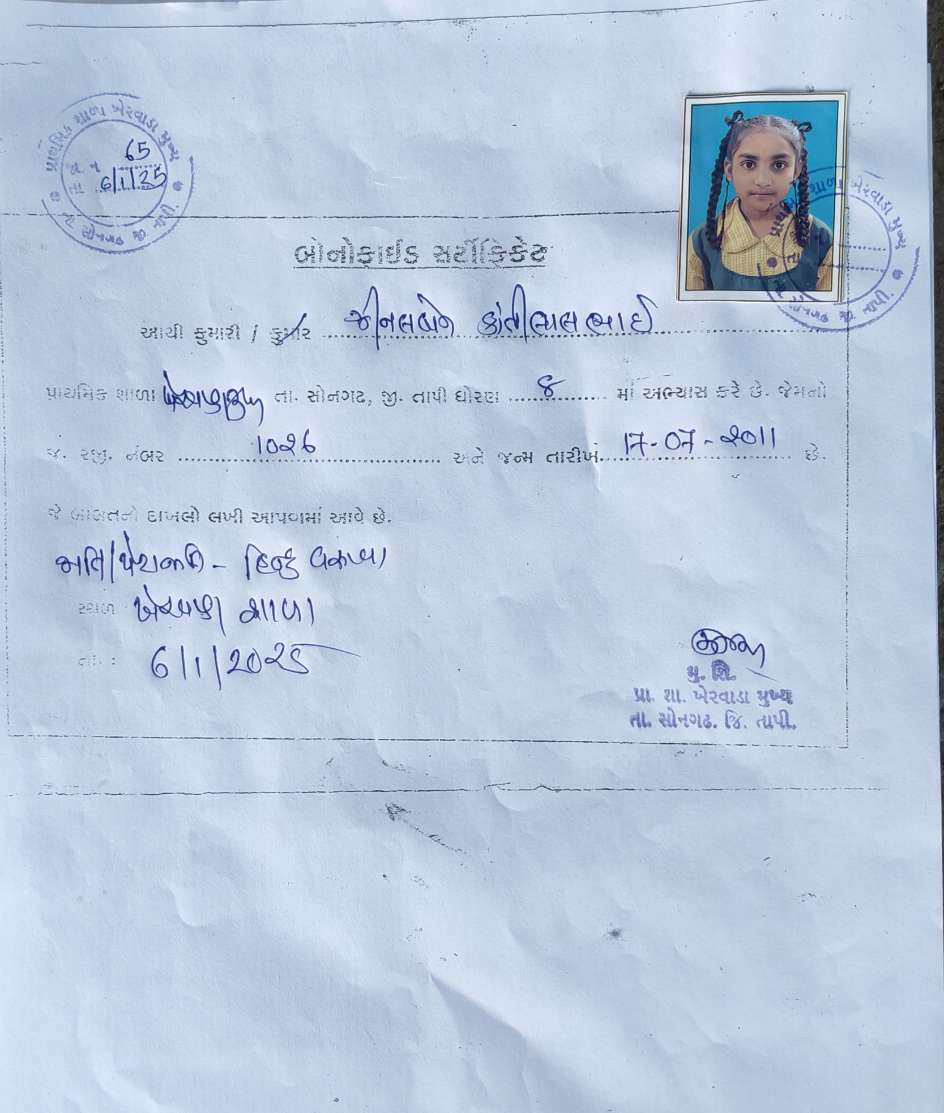 પ્રાથમિક શાળા ખેરવાડા મુખ્ય
જા. ન 65
તા. 6/1/25
તા. સોનગઢ જી. તાપી.
બોનોફાઈડ સર્ટીફિકેટ
આથી કુમારી / કુમાર જીનલબેન કાંતીલાલભાઈ
પ્રાથમિક શાળા તા. સોનગઢ, જી. તાપી ધોરણ 8 માં અભ્યાસ કરે છે. જેમનો
જ. રજી. નંબર 1026 અને જન્મ તારીખ 17-07-2011 છે.
જે બાબતનો દાખલો લખી આપવામાં આવે છે.
જાતિ/પેટાજાતિ - હિન્દુ
સ્થળ ખેરવાડા શાળા
તા. : 6/1/2025
મુ. શિ.
પ્રા. શા. ખેરવાડા મુખ્ય
તા. સોનગઢ. જિ. તાપી.